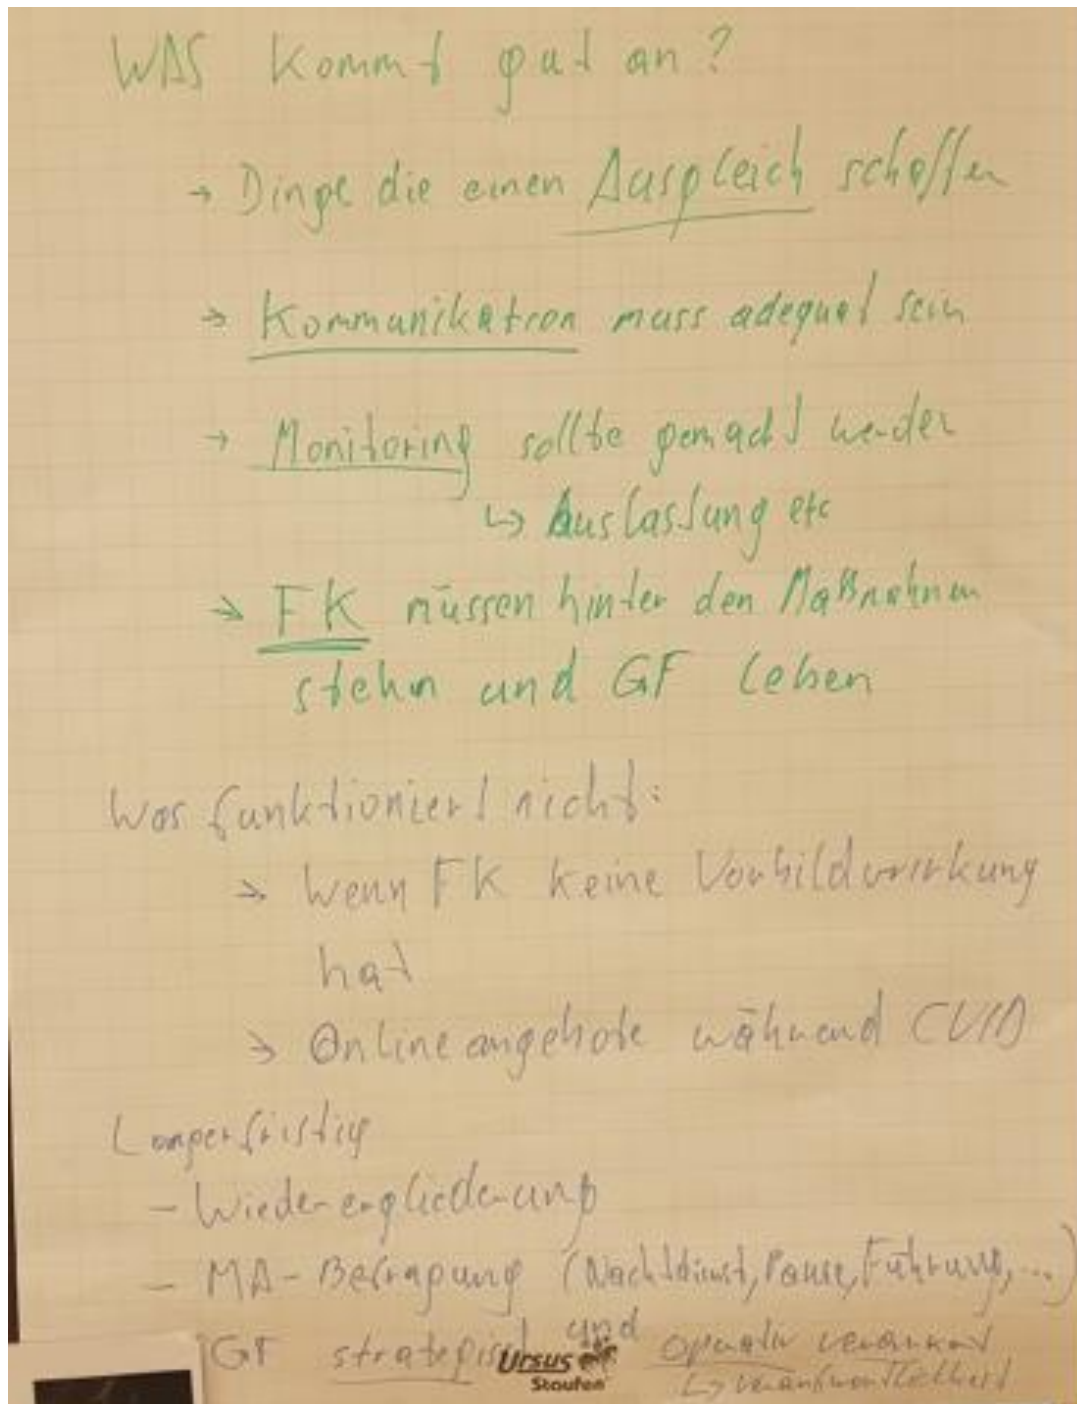 WAS kommt gut an?
→ Dinge die einen Ausgleich schaffen
→ Kommunikation muss adequat sein
→ Monitoring sollte gemacht werden
↳ Auslastung etc
→ FK müssen hinter den Maßnahmen
stehn und GF leben
Was funktioniert nicht:
→ Wenn FK keine Vorbildwirkung
hat
→ Onlineangebote während
Längerfristig
- Wiedereingliederung
- MA-Befragung (Nachtdienst, Pause, Führung, ...)
GF strategisch und operativ verankert
↳ Verantwortlichkeit
Ursus
Staufen